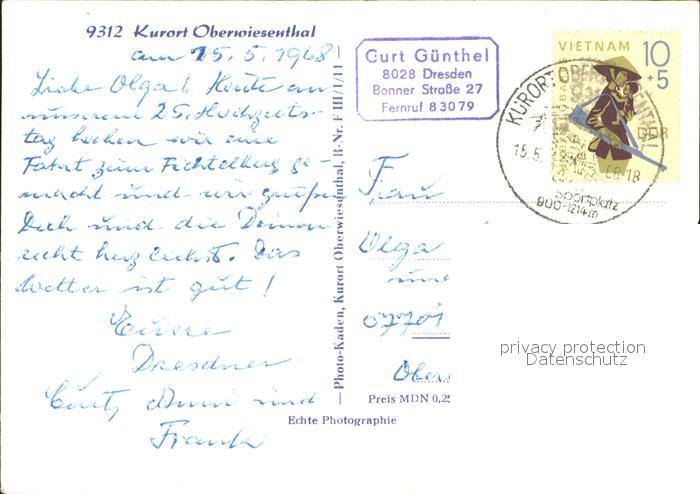 9312 Kurort Oberwiesenthal
am 15. 5. 1968
Liebe Olga! Heute an
unserem 25. Hochzeits-
tag haben wir eine
Fahrt zum Fichtelberg ge-
macht und wir grüßen
Dich und die Deinen
recht herzlichst. Das
Wetter ist gut!
Euere
Dresdner
Curt, Anni und
Frank
Photo-Kaden, Kurort Oberwiesenthal, R-Nr. F III/1/11
Echte Photographie
Curt Günthel
8028 Dresden
Bonner Straße 27
Fernruf 83079
VIETNAM 10
+5
DDR
KURORT OBER
15.5.
68-18
Sportplatz
900-1214m
Frau
Olga
und
0770
Ober
Preis MDN 0,25
privacy protection
Datenschutz